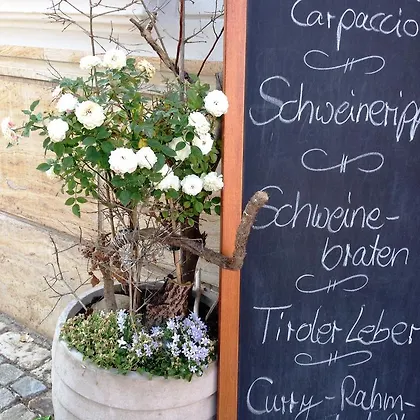 Carpaccio
Schweineripp
Schweine-
braten
Tiroler Leber
Curry-Rahm-